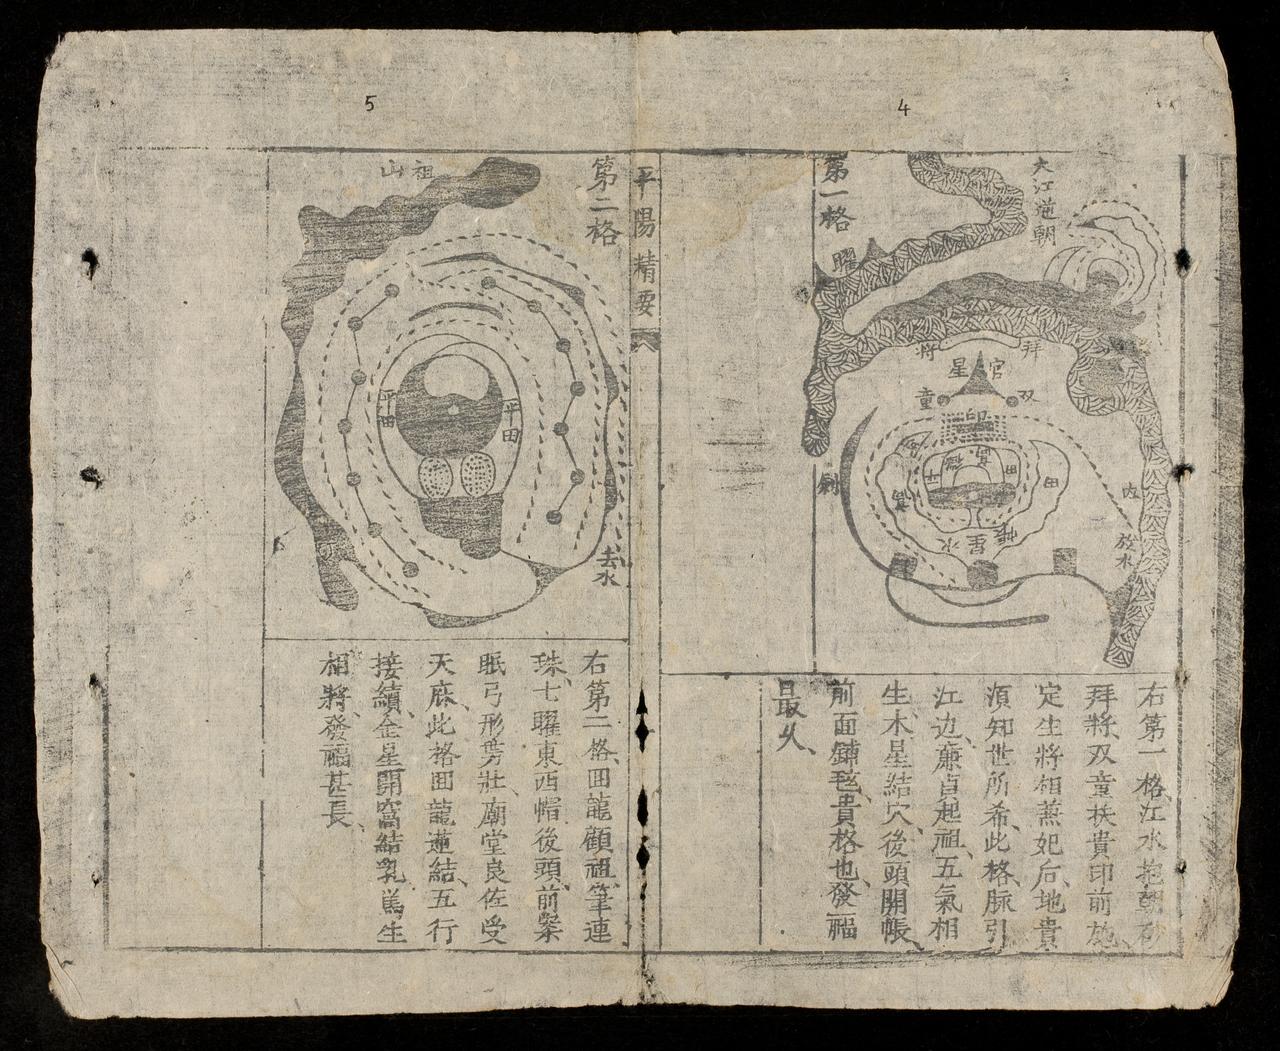 4
第一格
大江逆朝
曜
拜
將
官
星
双
童
印
田
平
田
水
星
帳
劍
内
放水
右第一格江水抱朝砂
拜將双童扶貴印前施
定生將相兼妃后地貴
須知世所希此格脉引
江边廉貞起祖五氣相
生木星結穴後頭開帳
前面鋪毡貴格也發福
最久
平陽精要
5
第二格
祖山
平田
平田
去水
右第二格囬龍顧祖筆連
珠七曜東西帽後頭前案
眠弓形勢壯廟堂良佐受
天庥此格囬龍逆結五行
接續金星開窩結乳篤生
相將發福甚長